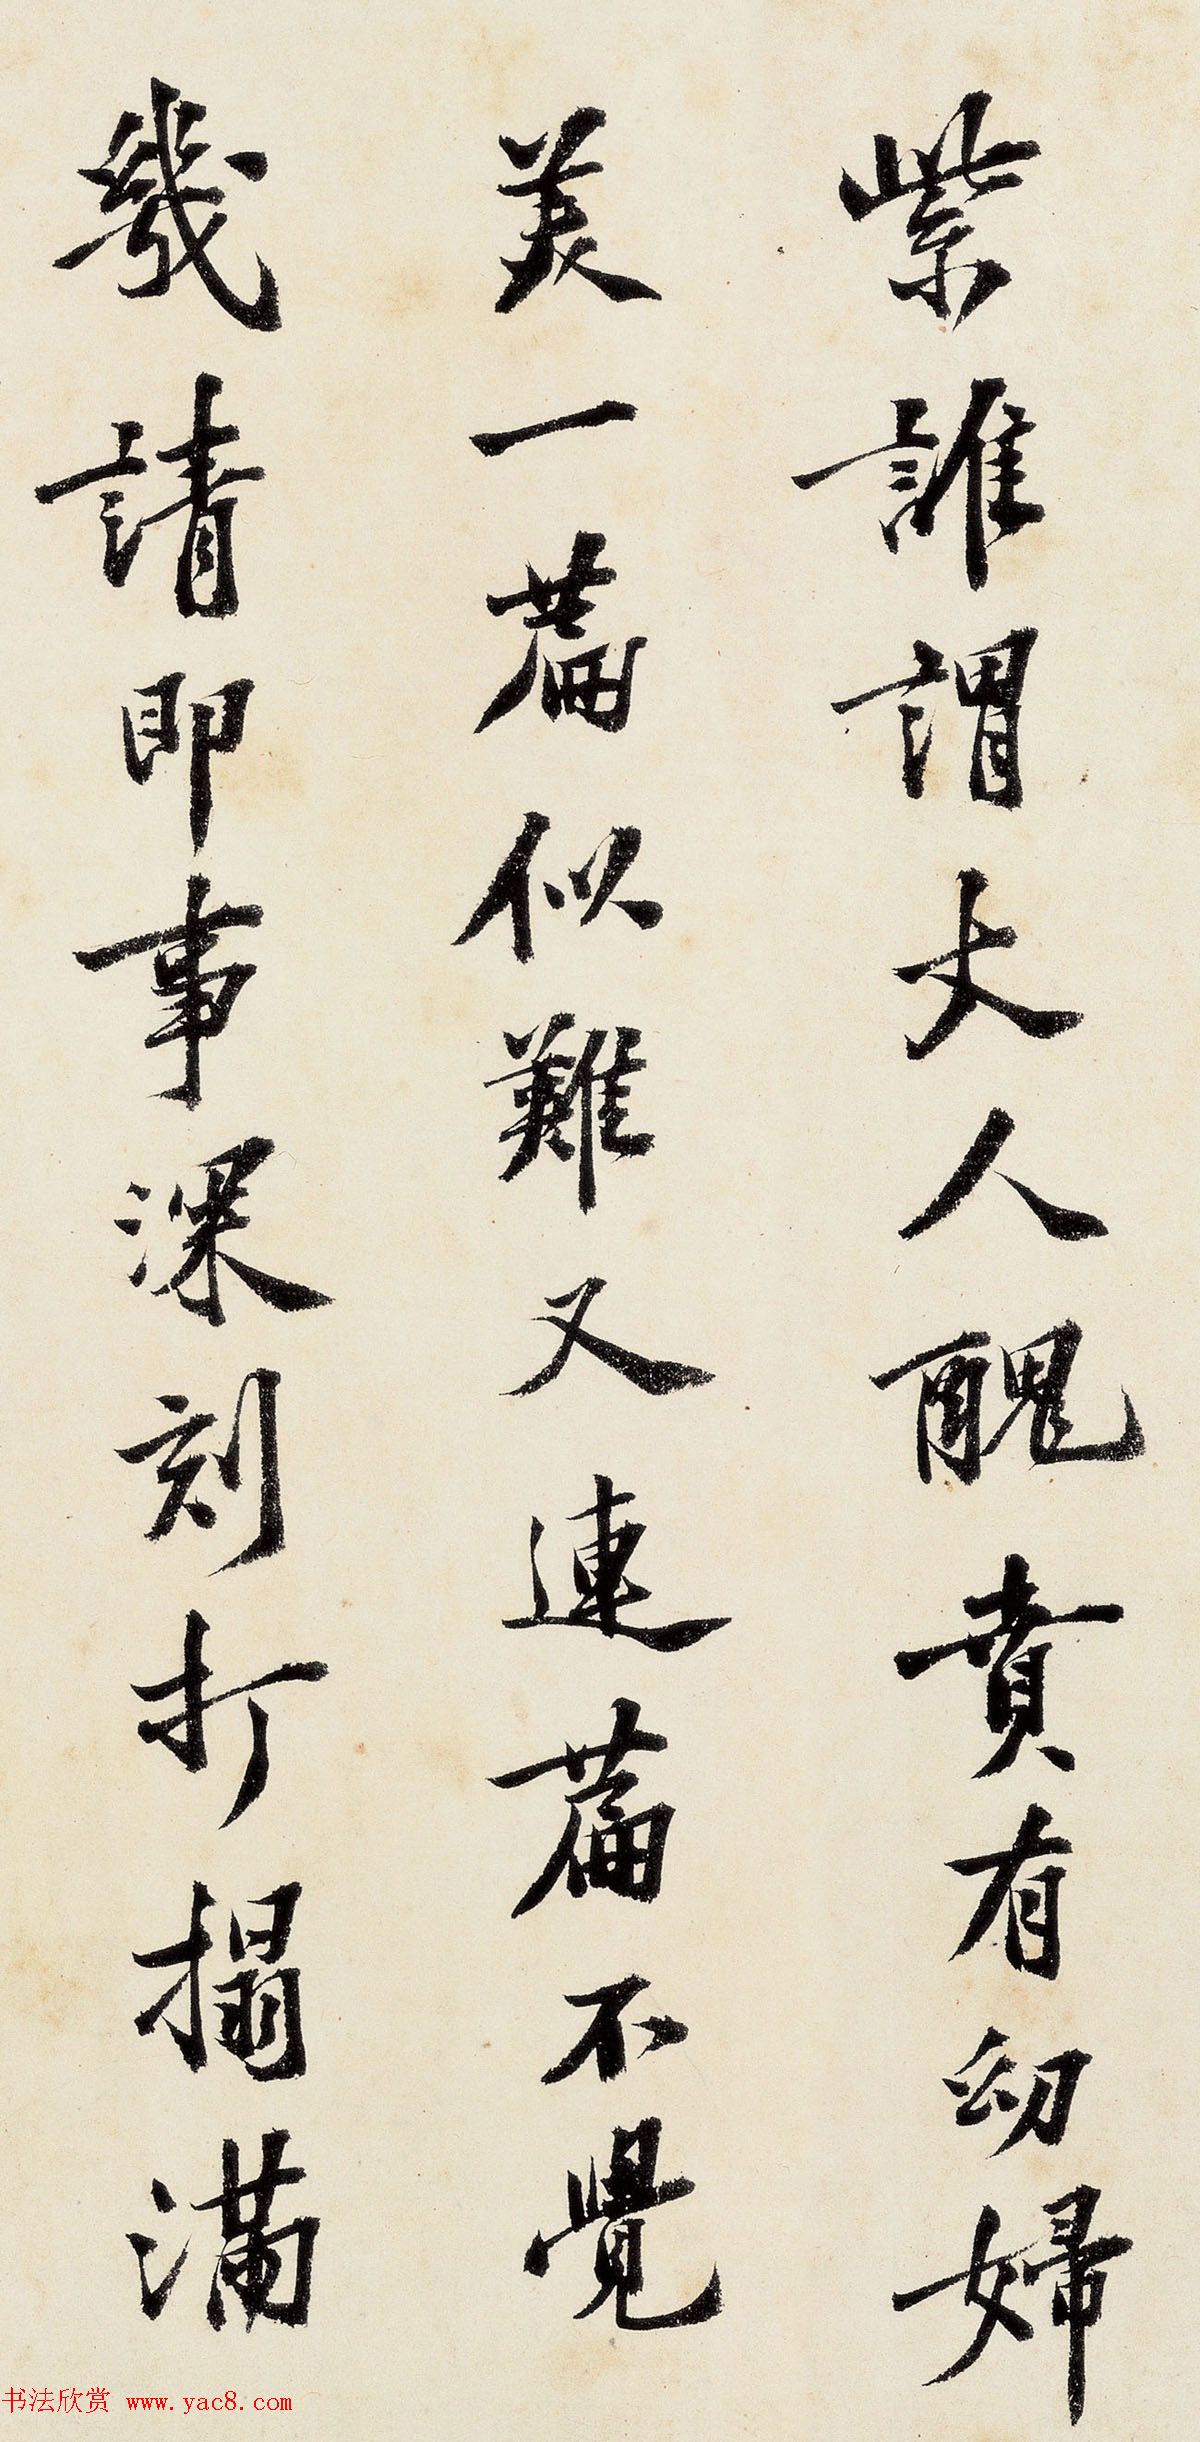 紫誰謂大人醜賁有幼婦
美一篇似難又連篇不覺
幾請即事深刻打搨滿
书法欣赏 www.yac8.com